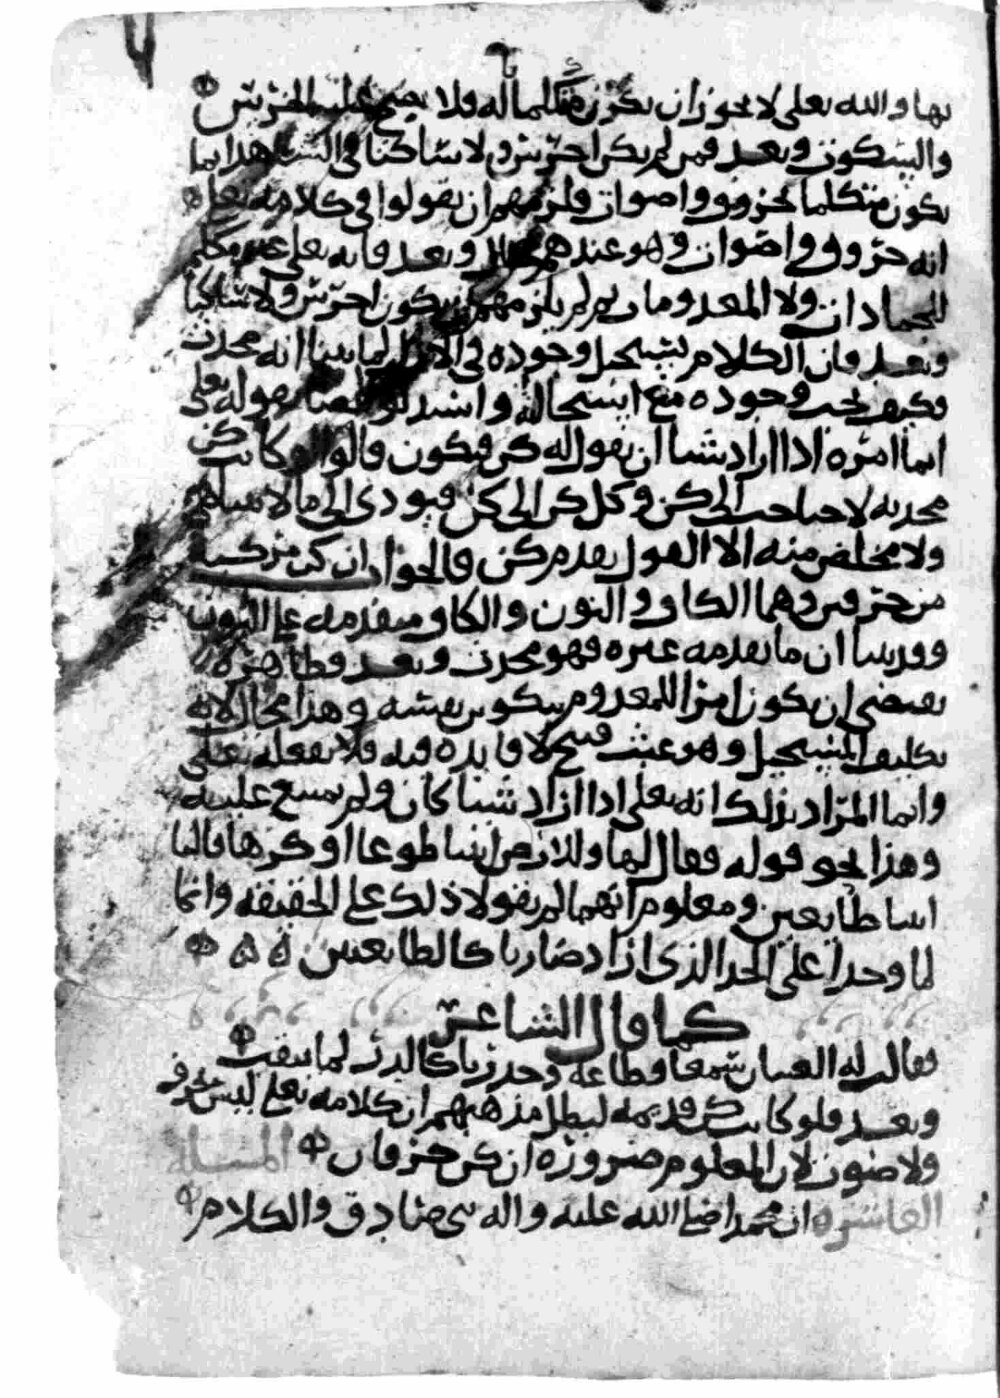 بها والله تعلى لا يجوز ان يكون متكلما له فلا يصح عليه الخرس
والسكوت وبعد فمن لم يكن اخرس ولا ساكتا في الشاهد انما
يكون متكلما بحروف واصوات فلزمهم ان يقولوا في كلامه تعلى
انه حروف واصوات وهو عندهم محال وبعد فانه تعلى غير مكلم
للجمادات ولا المعدومات ولم يلزمهم ان يكون اخرس ولا ساكتا
وبعد فان الكلام يستحيل وجوده في الازل لما بينا انه محدث
فكيف يجب وجوده مع استحالته واستدلوا ايضا بقوله تعلى
انما امره اذا اراد شيئا ان يقول له كن فيكون قالوا فلو كانت كن
محدثه لاحتاجت الى كن وكل كن الى كن فيودي الى ما لا يتناهى
ولا مخلص منه الا القول بقدم كن فالجواب ان كن مركبة
من حرفين وهما الكاف والنون والكاف متقدمه على النون
وقد بينا ان ما تقدمه غيره فهو محدث وبعد فظاهره
يقتضي ان يكون امرا للمعدوم بتكوين نفسه وهذا محال لانه
تكليف المستحيل وهو عبث قبيح لا فايده فيه فلا يفعله تعلى
وانما المراد بذلك انه تعلى اذا اراد شيئا كان ولم يمتنع عليه
وهذا نحو قوله فقال لها وللارض ايتيا طوعا او كرها قالتا
اتينا طايعين ومعلوم انهما لم يقولا ذلك على الحقيقه وانما
لما وجدا على الحد الذي اراد صارتا كالطايعتين
كما قال الشاعر
فقالت له العينان سمعا وطاعة وحدرتا كالدر لما يثقب
وبعد فلو كانت كن قديمه لبطل مذهبهم ان كلامه تعلى ليس بحرف
ولا صوت لان المعلوم ضرورة ان كن حرفان المسئلة
العاشرة ان محمدا صلى الله عليه واله نبي صادق والكلام